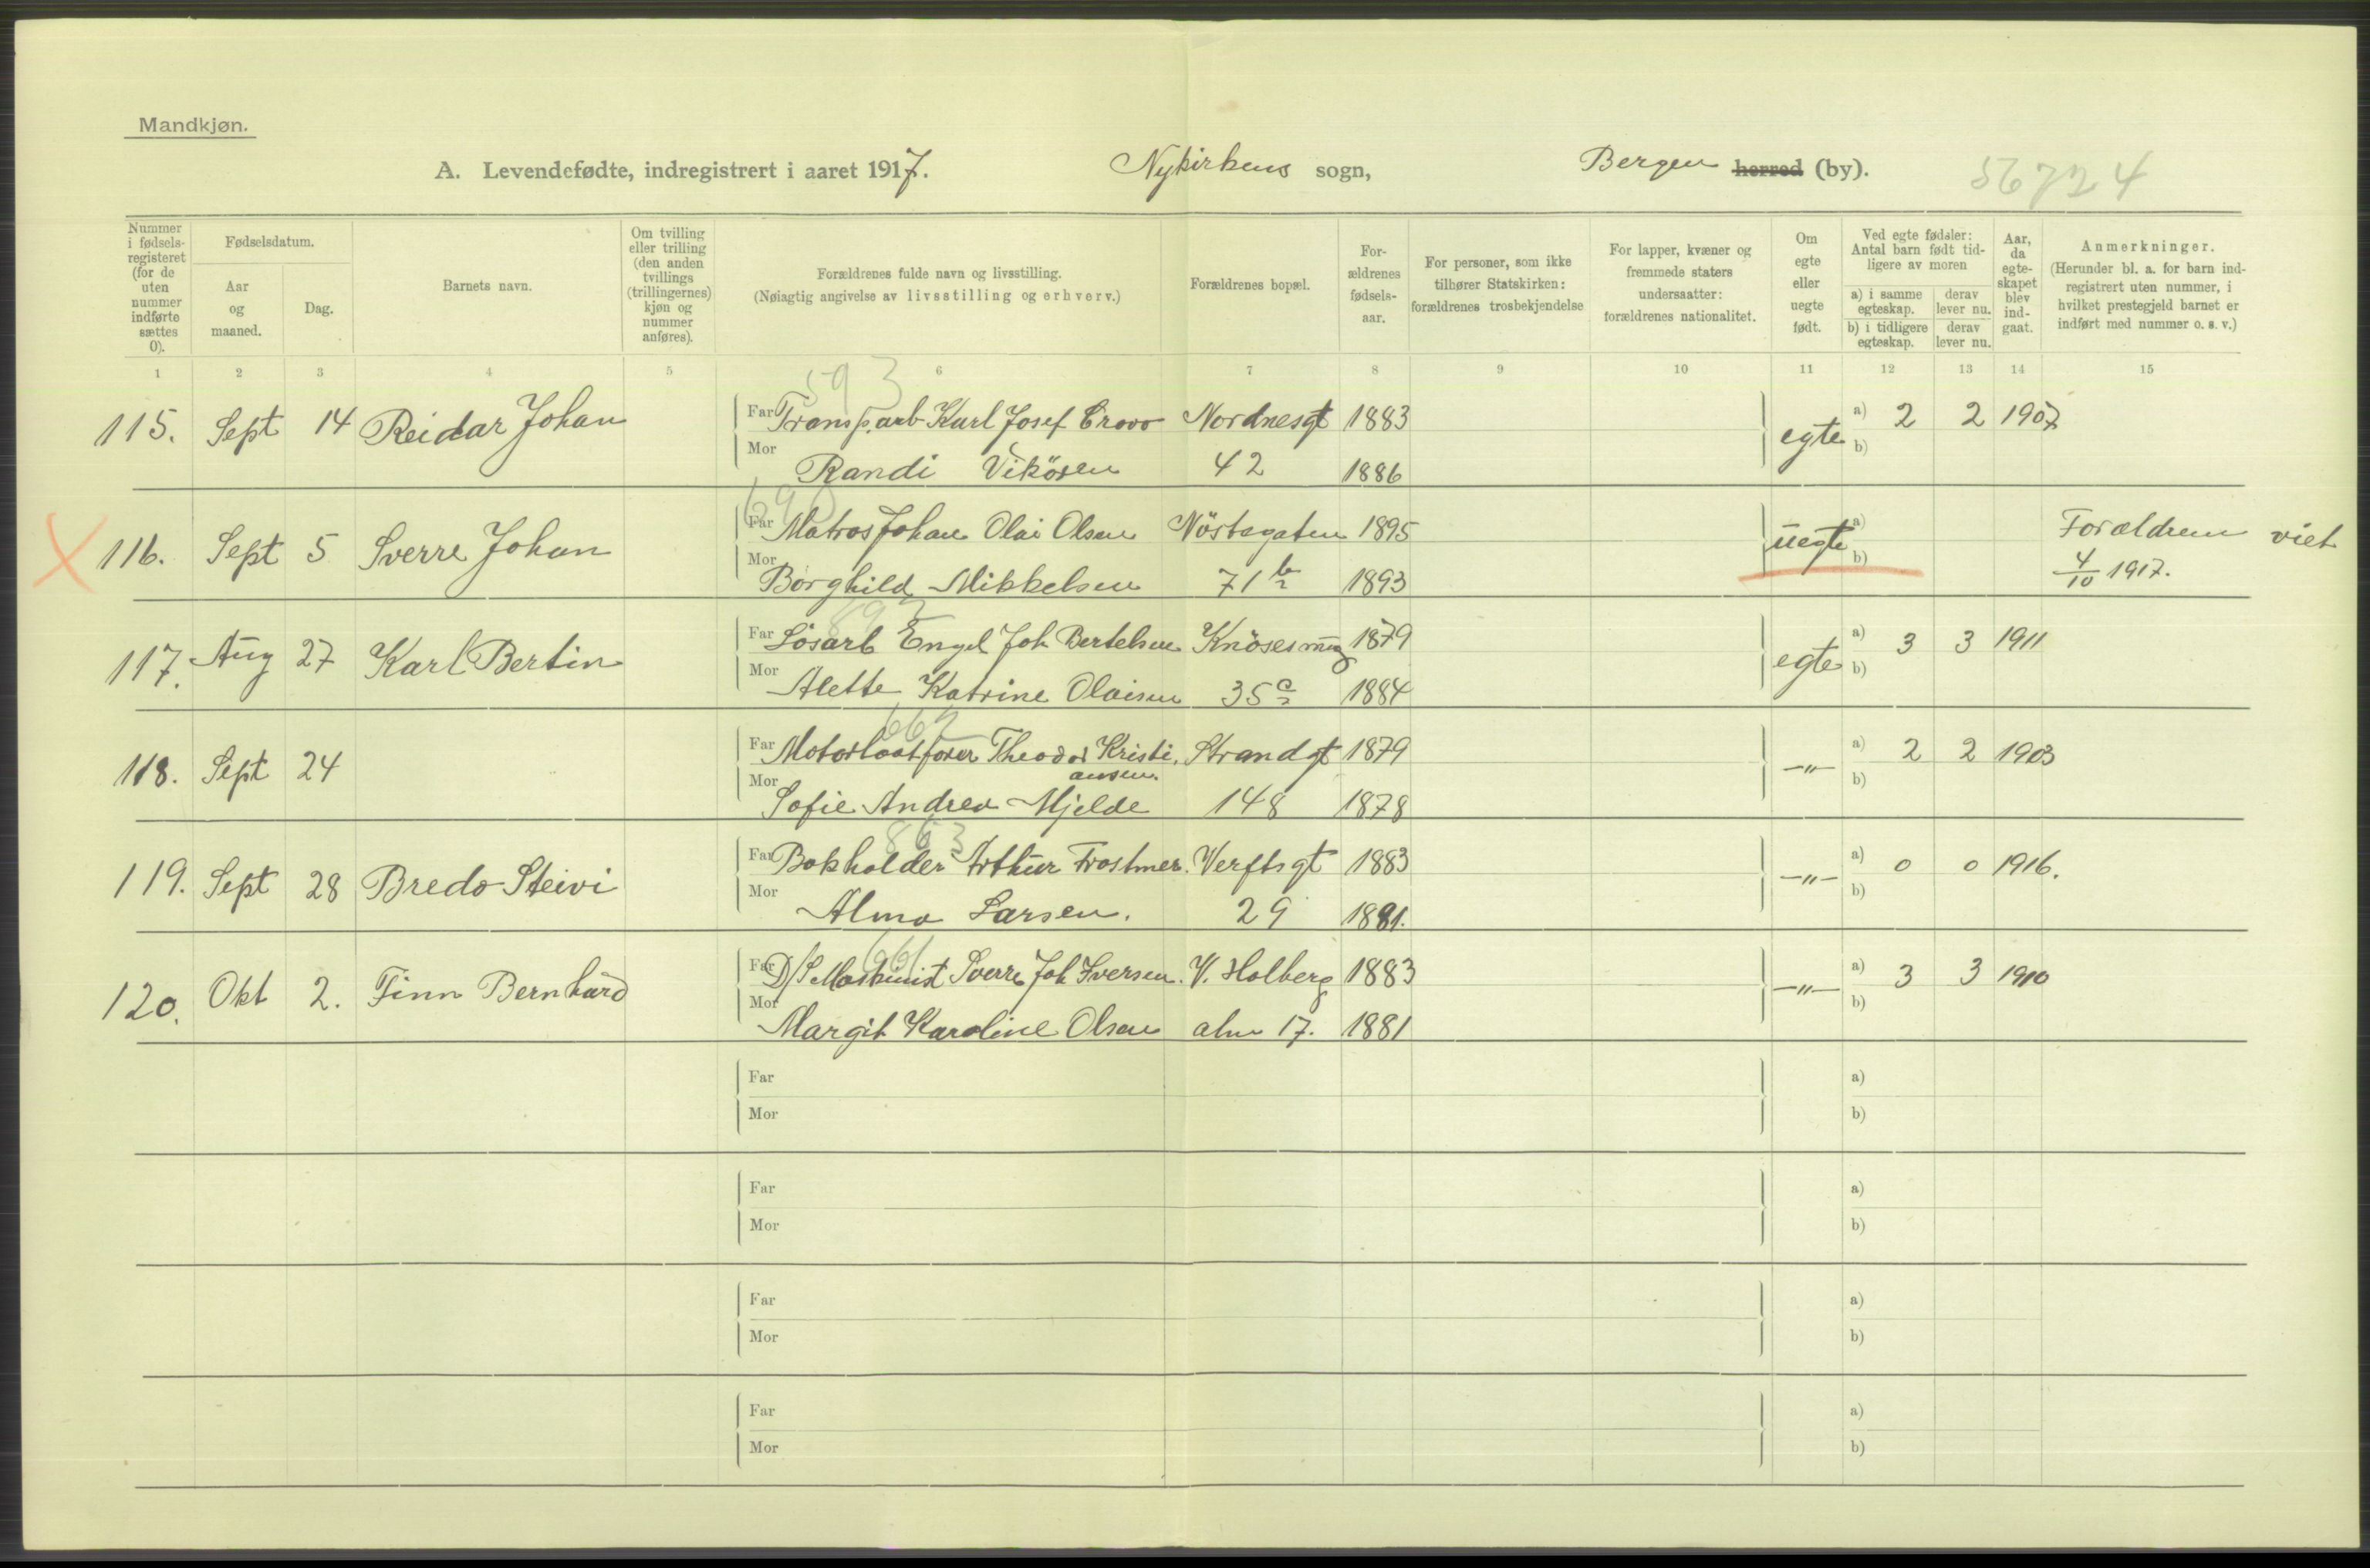 Mandkjøn.
A. Levendefødte, indregistrert i aaret 1917. Nykirkens sogn, Bergen herred (by). 56724
Nummer i fødsels-registeret (for de uten nummer indførte sættes 0).
Fødselsdatum.
Aar og maaned.
Dag.
Barnets navn.
Om tvilling eller trilling (den anden tvillings (trillingernes) kjøn og nummer anføres).
Forældrenes fulde navn og livsstilling.
(Nøiagtig angivelse av livsstilling og erhverv.)
Forældrenes bopæl.
For-ældrenes fødsels-aar.
For personer, som ikke tilhører Statskirken: forældrenes trosbekjendelse
For lapper, kvæner og fremmede staters undersaatter: forældrenes nationalitet.
Om egte eller uegte født.
Ved egte fødsler: Antal barn født tid-ligere av moren
a) i samme egteskap. derav lever nu.
b) i tidligere egteskap. derav lever nu.
Aar, da egte-skapet blev ind-gaat.
Anmerkninger.
(Herunder bl. a. for barn ind-registrert uten nummer, i hvilket prestegjeld barnet er indført med nummer o. s. v.)
1 2 3 4 5 6 7 8 9 10 11 12 13 14 15
593
115. Sept 14 Reidar Johan Far Transp.arb Karl Josef Nordnesgt 1883 egte a) 2 2 1907
Mor Randi Vikösen 42 1886 b)
690
X 116. Sept 5 Sverre Johan Far Matros Johan Olai Olsen Nöstegaten 1895 uegte a) Forældrene viet
Mor Borghild Mikkelsen 71 b/2 1893 b) 4/10 1917.
117. Aug 27 Karl Bertin Far Lösarb Engel Joh Bertelsen Knösesmug 1879 egte a) 3 3 1911
Mor Alette Katrine Olaisen 35 a/2 1884 b)
662
118. Sept 24 Far Motorbaatforer Theodor Kristi, Strandgt 1879 —"— a) 2 2 1903
ansen.
Mor Sofie Andrea Mjelde 148 1878 b)
863
119. Sept 28 Bredo Steivi Far Bokholder Arthur Trostmer. Verftsgt 1883 —"— a) 0 0 1916.
Mor Alma Larsen. 29 1881. b)
661
120. Okt 2. Finn Bernhard Far D/S Maskinist Sverre Joh Iversen. V. Holberg 1883 —"— a) 3 3 1910
Mor Margit Karoline Olsen alm 17. 1881 b)
Far a)
Mor b)
Far a)
Mor b)
Far a)
Mor b)
Far a)
Mor b)